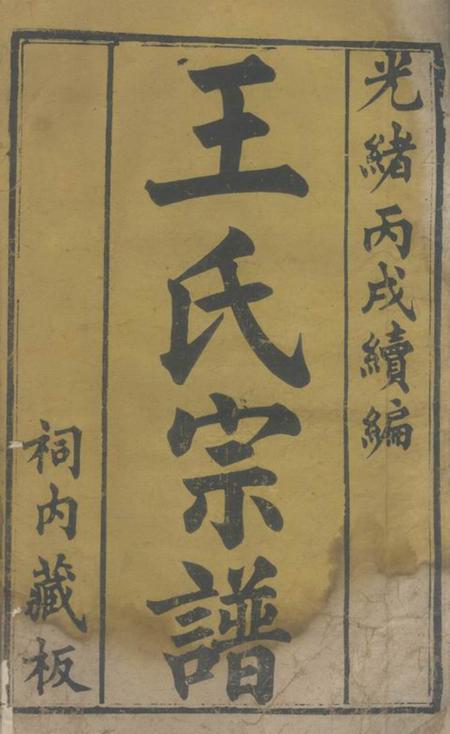 光緒丙戌續編
王氏宗譜
祠内藏板